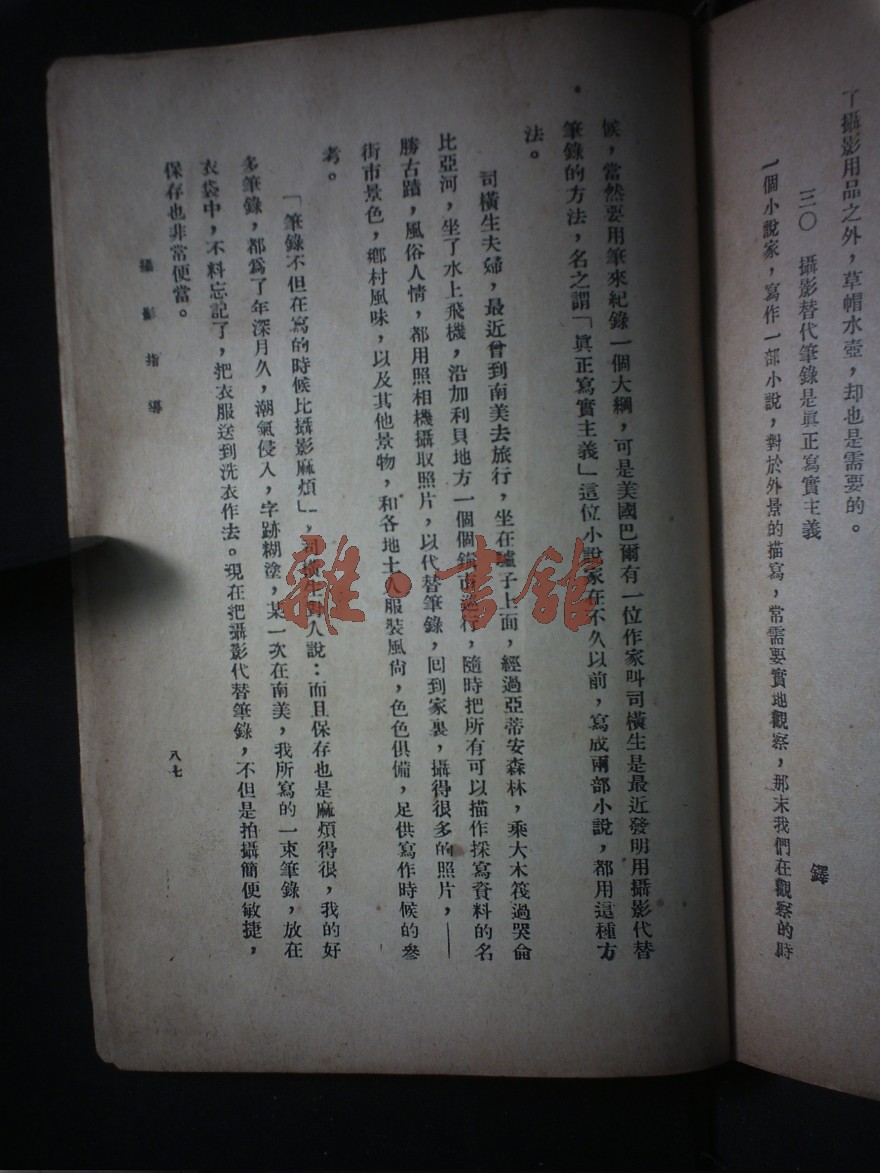 了攝影用品之外，草帽水壺，却也是需要的。
三〇　攝影替代筆錄是眞正寫實主義
鐸
一個小說家，寫作一部小說，對於外景的描寫，常需要實地觀察，那末我們在觀察的時
候，當然要用筆來紀錄一個大綱，可是美國巴爾有一位作家叫司橫生是最近發明用攝影代替
筆錄的方法，名之謂「眞正寫實主義」這位小說家在不久以前，寫成兩部小說，都用這種方
法。
司橫生夫婦，最近曾到南美去旅行，坐在驢子上面，經過亞蒂安森林，乘大木筏過哭侖
比亞河，坐了水上飛機，沿加利貝地方一個個鎮市巡行，隨時把所有可以描作採寫資料的名
勝古蹟，風俗人情，都用照相機攝取照片，以代替筆錄，回到家裏，攝得很多的照片，——
街市景色，鄉村風味，以及其他景物，和各地土人服裝風尙，色色俱備，足供寫作時候的參
考。
「筆錄不但在寫的時候比攝影麻煩」，司橫生對人說：而且保存也是麻煩得很，我的好
多筆錄，都爲了年深月久，潮氣侵入，字跡糊塗，某一次在南美，我所寫的一束筆錄，放在
衣袋中，不料忘記了，把衣服送到洗衣作去。現在把攝影代替筆錄，不但是拍攝簡便敏捷，
保存也非常便當。
攝影指導
八七
雜·書館